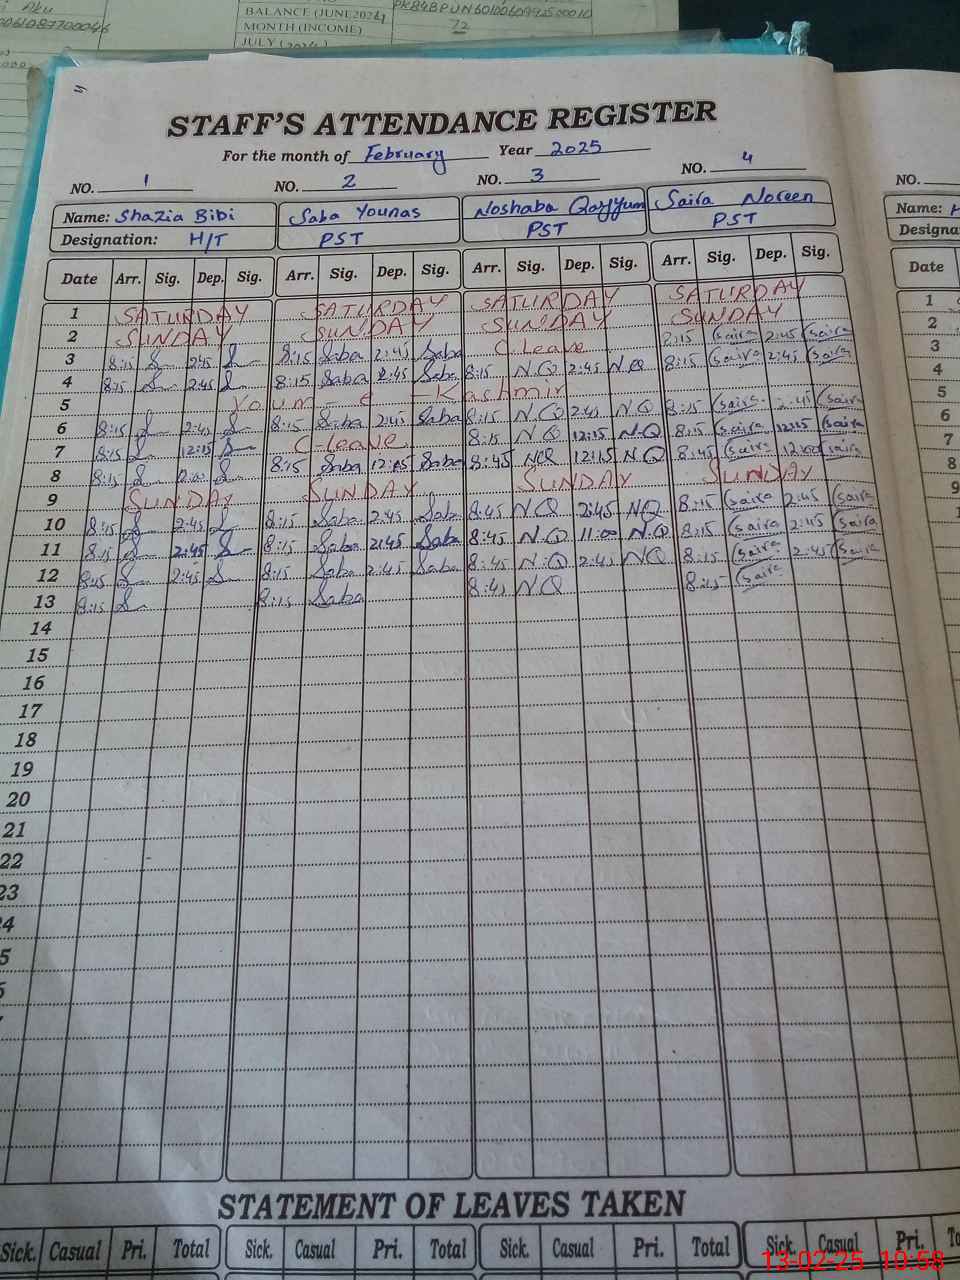 BALANCE (JUNE 2024
PK84BPUN6010060992500010
MONTH (INCOME) 72
JULY (2024)
STAFF'S ATTENDANCE REGISTER
For the month of February Year 2025
NO. 1 NO. 2 NO. 3 NO. 4 NO.
Name: Shazia Bibi Saba Younas Noshaba Qayyum Saira Noreen Name:
Designation: H/T PST PST PST Designa
Date Arr. Sig. Dep. Sig. Arr. Sig. Dep. Sig. Arr. Sig. Dep. Sig. Arr. Sig. Dep. Sig. Date
1 SATURDAY SATURDAY SATURDAY SATURDAY 1
2 SUNDAY SUNDAY SUNDAY SUNDAY 2
3 8:15 2:45 8:15 Saba 2:45 Saba C.leave 8:15 Saira 2:45 Saira 3
4 8:15 2:45 8:15 Saba 2:45 Saba 8:15 N.Q 2:45 N.Q 8:15 Saira 2:45 Saira 4
5 Youm-e-Kashmir 5
6 8:15 2:45 8:15 Saba 2:45 Saba 8:15 N.Q 2:45 N.Q 8:15 Saira 2:45 Saira 6
7 8:15 12:15 C-leave 8:15 N.Q 12:15 N.Q 8:15 Saira 12:15 Saira 7
8 8:15 8:15 Saba 12:15 Saba 8:45 NQ 12:15 N.Q 8:45 Saira Saira 8
9 SUNDAY SUNDAY SUNDAY SUNDAY 9
10 8:15 2:45 8:15 Saba 2:45 Saba 8:45 NQ 2:45 NQ 8:15 Saira 2:45 Saira
11 8:15 2:45 8:15 Saba 2:45 Saba 8:45 N.Q 11:00 N.Q 8:15 Saira 2:45 Saira
12 8:15 2:45 8:15 Saba 2:45 Saba 8:45 N.Q 2:45 NQ 8:15 Saira 2:45 Saira
13 8:15 8:15 Saba 8:45 NQ 8:15 Saira
14
15
16
17
18
19
20
21
22
23
STATEMENT OF LEAVES TAKEN
Sick. Casual Pri. Total Sick. Casual Pri. Total Sick. Casual Pri. Total Sick. Casual Pri. Total
13-02-25 10:58